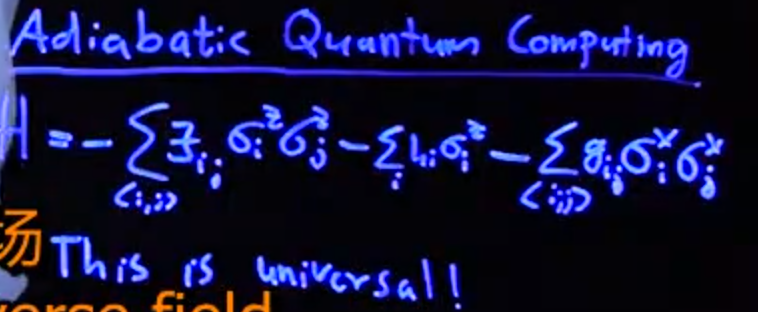 Adiabatic Quantum Computing
H = - Σ J_{ij} σ_i^z σ_j^z - Σ h_i σ_i^z - Σ g_{ij} σ_i^x σ_j^x
<i,j> i <i,j>
场
This is universal!
verse field